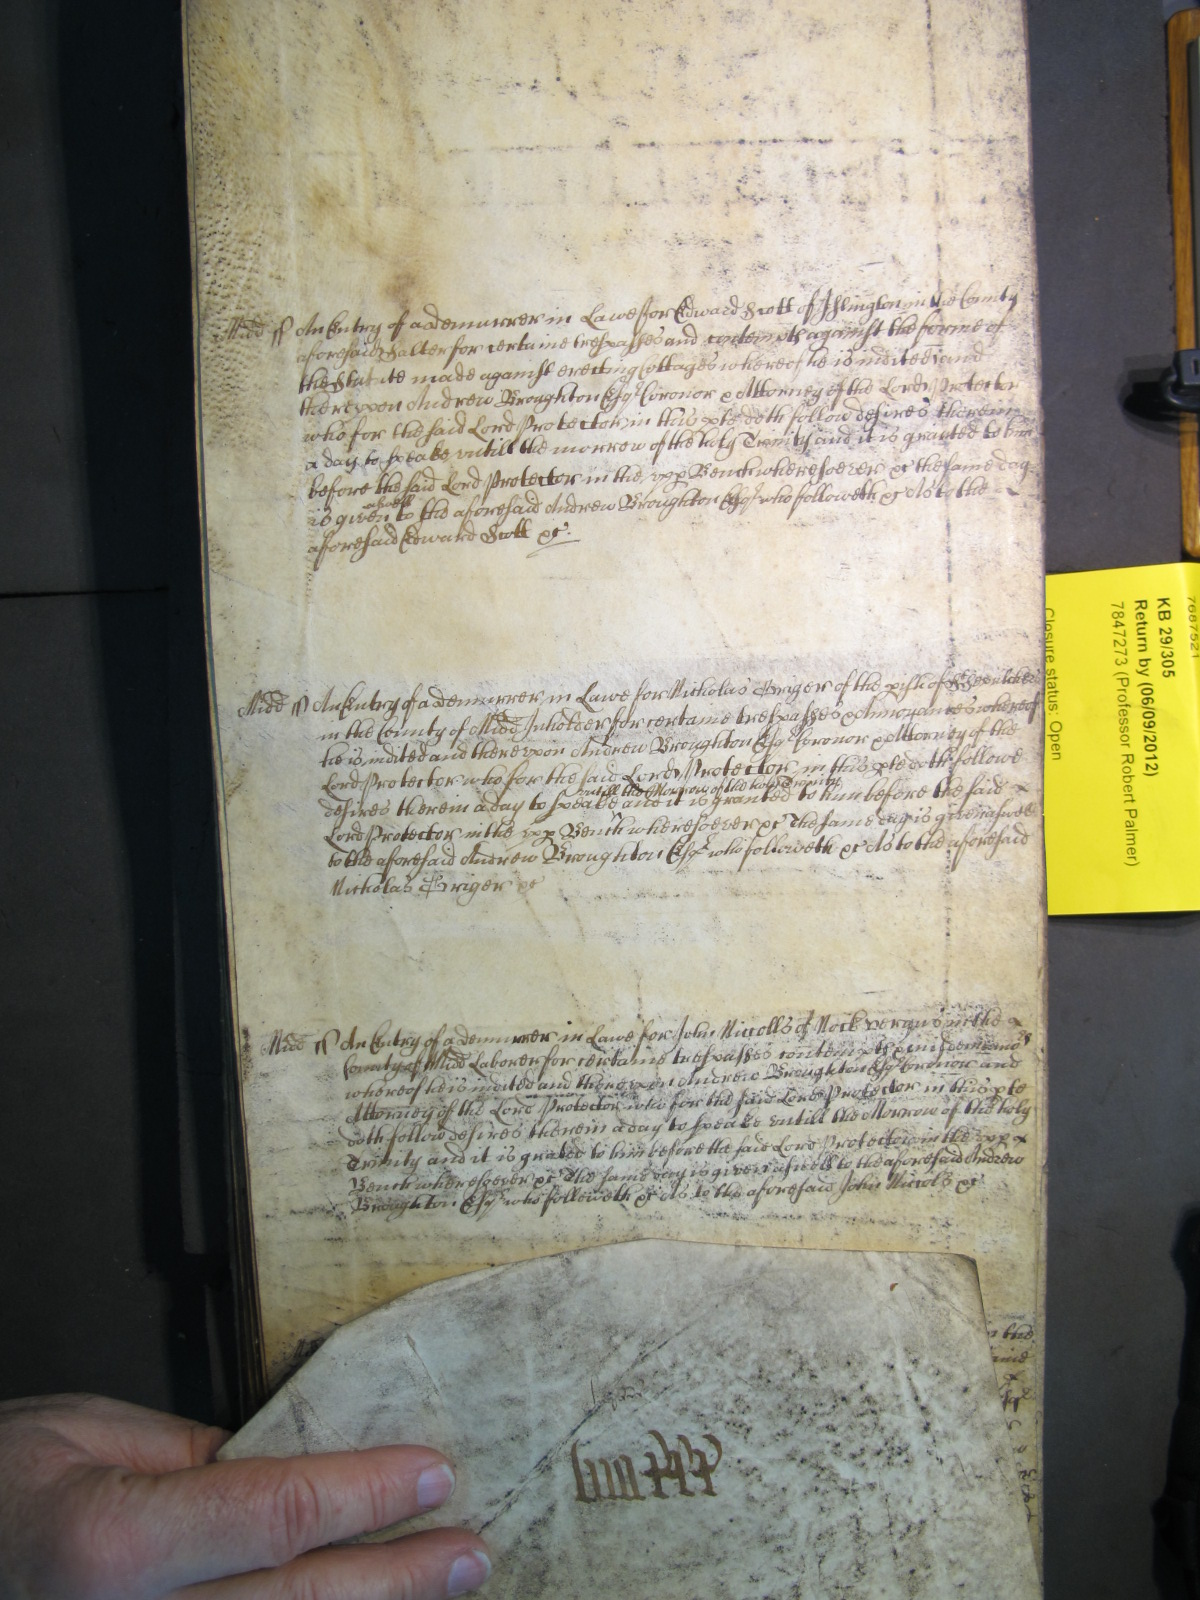 Midd ss An Entry of a demurrer in Lawe for Edward Scott of Islington in the County
aforesaid Salter for certaine trespasses and contempts against the forme of
the Statute made against erecting Cottages whereof he is indited and
thereupon Andrew Broughton Esqr Coronor & Attorney of the Lord Protector
who for the said Lord Protector in this pte doth follow desires therein
a day to speake untill the morrow of the holy Trinity and it is granted to him
before the said Lord Protector in the upp Bench wheresoever &c the same day
is given aswell to the aforesaid Andrew Broughton Esqr who followeth &c As to the
aforesaid Edward Scott &c.
Midd ss An Entry of a demurrer in Lawe for Nicholas Briger of the pish of
in the County of Midd Inholder for certaine trespasses & Annoyances whereof
he is indited and thereupon Andrew Broughton Esqr Coronor & Attorney of the
Lord Protector who for the said Lord Protector in this pte doth followe
desires therein a day to speake untill the Morrow of the holy Trinity and it is granted to him before the said
Lord Protector in the upp Bench wheresoever &c The same day is given aswell
to the aforesaid Andrew Broughton Esqr who followeth &c As to the aforesaid
Nicholas Briger &c
Midd ss An Entry of a demurrer in Lawe for John Niccolls of Nock vergis in the
County of Midd Laborer for certaine trespasses contempts & misdemeanors
whereof he is indited and thereupon Andrew Broughton Esqr Coronor and
Attorney of the Lord Protector who for the said Lord Protector in this pte
doth follow desires therein a day to speake untill the Morrow of the holy
Trinity and it is grated to him before the said Lord Protector in the upp
Bench wheresoever &c The same day is given aswell to the aforesaid Andrew
Broughton Esqr who followeth &c As to the aforesaid John Niccols &c
KB 29/305
Return by (06/09/2012)
7847273 (Professor Robert Palmer)
Closure status: Open